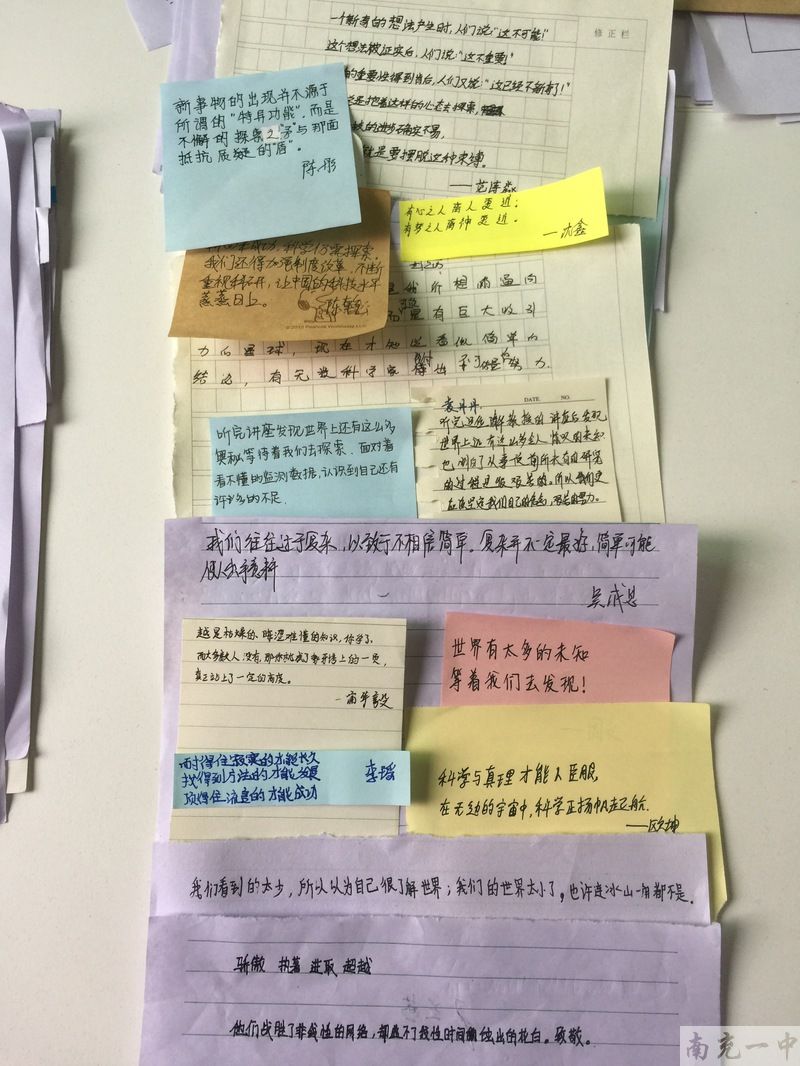 一个新奇的想法产生时,人们说"这不可能!"
修正栏
这个想法被证实后,人们说:"这不重要!"
的重要性得到肯后,人们又说:"这已经不新奇了!"
总是抱着这样的心态去探索,
的进步确实不易,
就是要摆脱这种束缚。
——范涛淼
新事物的出现并不源于
所谓的"特异功能",而是
不懈的探索之"矛"与那面
抵抗质疑的"盾"。
陈彤
有心之人离人更近;
有梦之人离神更近。
—沈鑫
成功,科学仍需探索,
我们还得加强制度改革,不断
重视科研,让中国的科技水平
蒸蒸日上。
©2010 Peanuts Worldwide LLC
我所想的通向
是有巨大吸引
力的星球,现在才知道看似简单的
结论,有无数科学家
努力.
听完讲座发现世界上还有这么多
奥秘等待着我们去探索,面对着
看不懂的监测数据,认识到自己还有
许多的不足.
DATE NO.
袁丹丹.
世界上还有这么多
的过程是很艰苦的。所以我们更
应该坚定我们自己的信念,
我们往往过于复杂,以致于不相信简单。复杂并不一定最好,简单可能
吴成思
越是枯燥的、晦涩难懂的知识,你学了,
而大多数人没有,那你就成了
真正站上了一定的高度。
世界有太多的未知
等着我们去发现!
耐得住寂寞的才能长久
找得到方法的才能发展
顶得住流言的才能成功
李瑶
科学与真理才能人臣服,
在无边的宇宙中,科学正扬帆起航.
——欧坤
我们看到的太少,所以以为自己很了解世界;我们的世界太小了,也许连冰山一角都不是.
骄傲 执著 进取 超越
他们战胜了非线性的网络,却赢不了线性时间
的花白。致敬。
南充一中